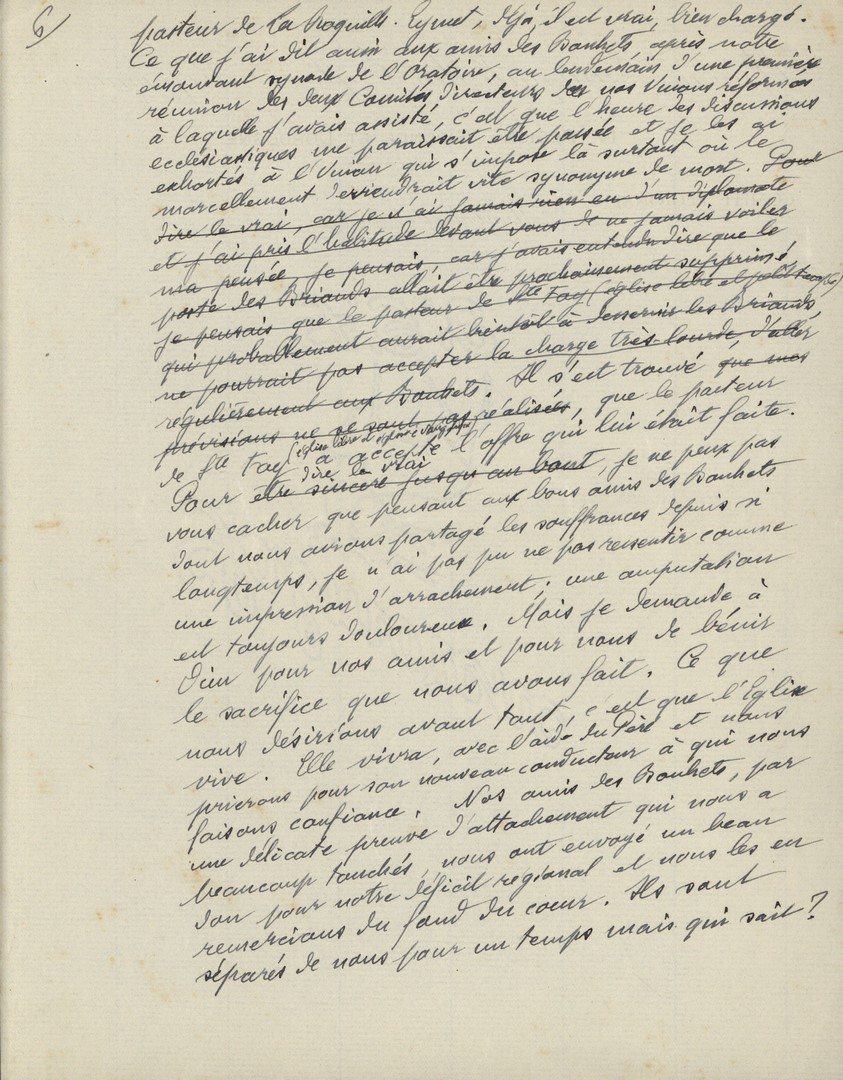 6)
pasteur de La Roquille. Eymet, déjà, il est vrai, bien chargé.
Ce que j'ai dit aussi aux amis des Bouhets, après notre
émouvant synode de l'Oratoire, au lendemain d'une première
réunion des deux Comités directeurs de nos Unions réformées
à laquelle j'avais assisté, c'est que l'heure des discussions
ecclésiastiques me paraissait être passée et je les ai
exhortés à l'Union qui s'impose là surtout où le
morcellement deviendrait vite synonyme de mort. Pour
dire le vrai, car je n'ai jamais rien eu d'un diplomate
et j'ai pris l'habitude devant vous de ne jamais voiler
ma pensée, je pensais, car j'avais entendu dire que le
poste des Briands allait être prochainement supprimé,
je pensais que le pasteur de Ste Foy (église libre et
qui probablement aurait bientôt à desservir les Briands,
ne pourrait pas accepter la charge très lourde, d'aller
régulièrement aux Bouhets. Il s'est trouvé que mes
prévisions ne se sont pas réalisées, que le pasteur
de Ste Foy (église libre et église évang) a accepté l'offre qui lui était faite.
dire le vrai
Pour être sincère jusqu'au bout, je ne peux pas
vous cacher que pensant aux bons amis des Bouhets
dont nous avions partagé les souffrances depuis si
longtemps, je n'ai pas pu ne pas ressentir comme
une impression d'arrachement; une amputation
est toujours douloureuse. Mais je demande à
Dieu pour nos amis et pour nous de bénir
le sacrifice que nous avons fait. Ce que
nous désirions avant tout c'est que l'Eglise
vive. Elle vivra, avec l'aide du Père et nous
prierons pour son nouveau conducteur à qui nous
faisons confiance. Nos amis des Bouhets, par
une délicate preuve d'attachement qui nous a
beaucoup touchés, nous ont envoyé un beau
don pour notre déficit régional et nous les en
remercions du fond du coeur. Ils sont
séparés de nous pour un temps mais qui sait?